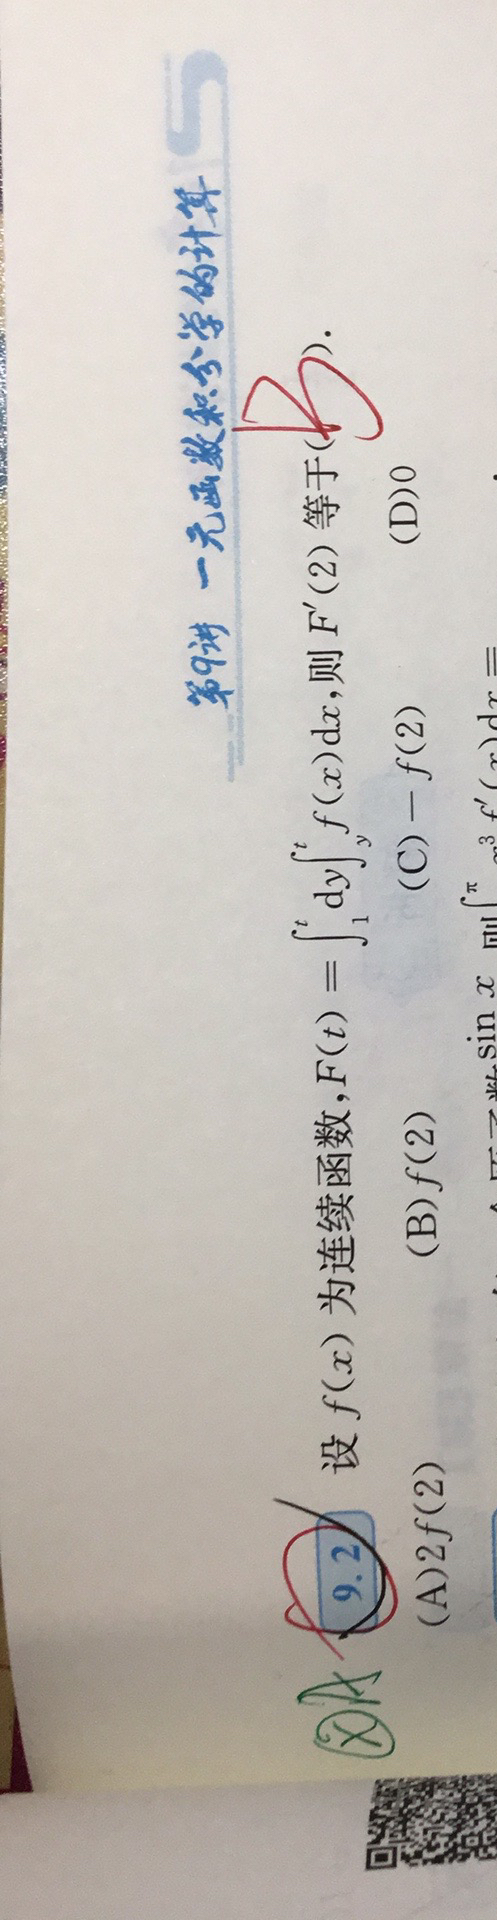 第9讲 一元函数积分学的计算
ⓧA
9.2 设 f(x) 为连续函数,F(t) = ∫₁ᵗ dy∫ᵧᵗ f(x)dx,则 F′(2) 等于(B).
(A)2f(2) (B)f(2) (C)－f(2) (D)0
sin x 则∫ f′(x)dx =